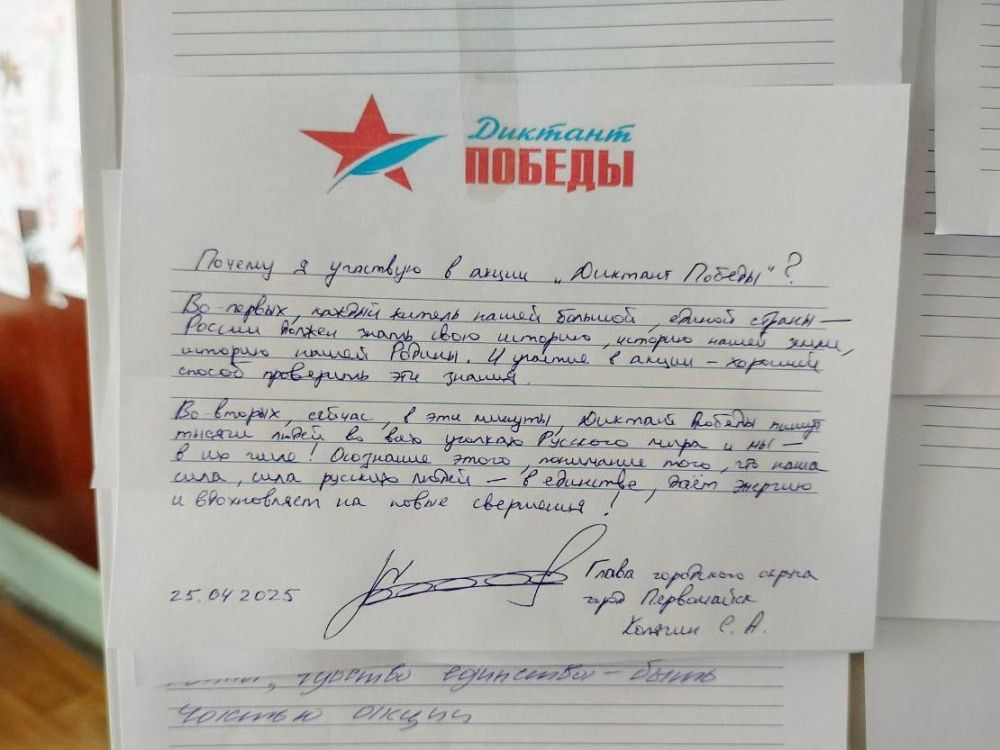 Диктант
ПОБЕДЫ
Почему я участвую в акции „Диктант Победы"?
Во-первых, каждый житель нашей большой, единой страны —
России должен знать свою историю, историю нашей земли,
историю нашей Родины. И участие в акции – хороший
способ проверить эти знания.
Во-вторых, сейчас, в эти минуты, Диктант Победы пишут
тысячи людей во всех уголках Русского мира и мы –
в их числе! Осознание этого, понимание того, что наша
сила, сила русских людей – в единстве, даёт энергию
и вдохновляет на новые свершения!
25.04.2025
Глава городского округа
город Первомайск
Колягин С. А.
чувство единства – быть
частью акции